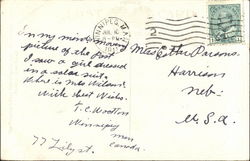 WINNIPEG MAN.
In my mind's moving
picture of the past
I saw a girl dressed
in a sailor suit.
Where is Miss Wilson?
With Best Wishes.
T.C. Wootton
Winnipeg
Man
Canada.
77 Lily st.
2
Miss Esther Parsons.
Harrison
Neb.
U.S.A.